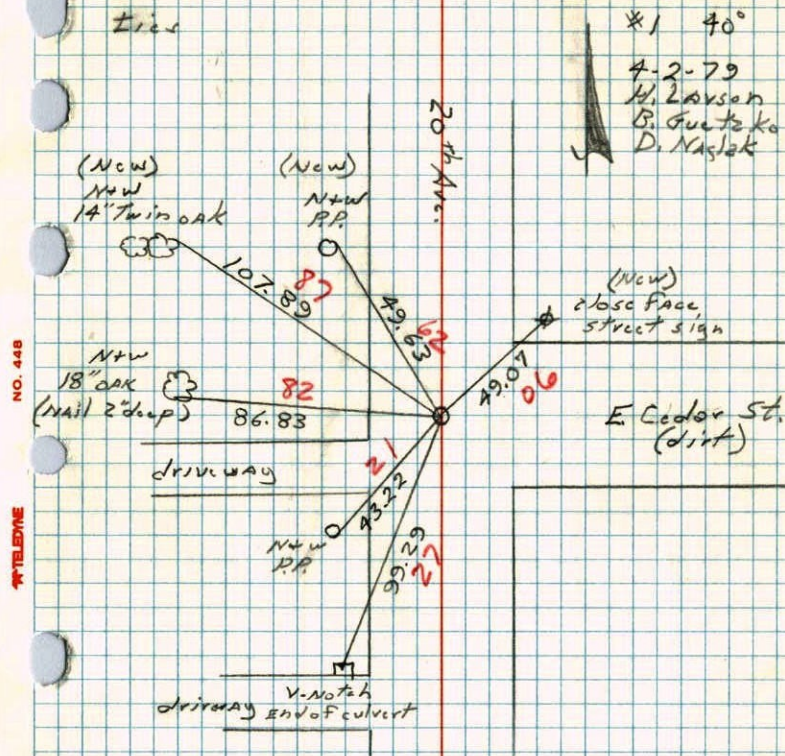 ties
#1 40°
4-2-79
H. Larson
B. Guetzko
D. Naglak
20th Ave.
(New)
N+W
14" Twin OAK
(New)
N+W
P.P.
107.89
87
49.63
62
(New)
close face
street sign
49.07
06
N+W
18" OAK
(NAil 2" deep)
82
86.83
E. Cedar St.
(dirt)
driveway
21
43.22
N+W
P.P.
99.29
27
V-Notch
End of culvert
driveway
NO. 448
TELEDYNE